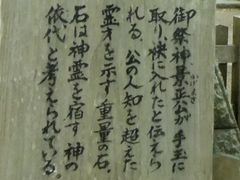 御祭神景正公が手玉に
かげまさ
取り、袂に入れたと伝えら
れる。公の人知を超えた
霊才を示す重量の石。
石は神霊を宿す神の
依代と考えられている。